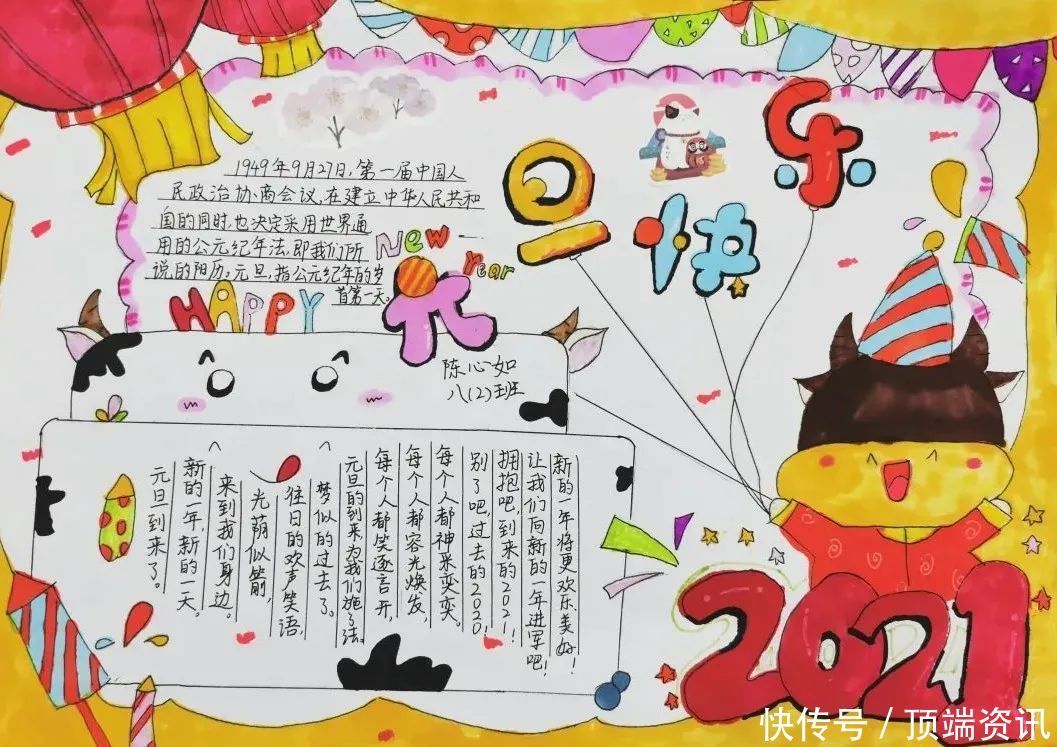 1949年9月27日,第一届中国人
民政治协商会议,在建立中华人民共和
国的同时,也决定采用世界通
用的公元纪年法,即我们所
说的阳历。元旦,指公元纪年的岁
首第一天。
New
Year
HAPPY
元
旦
快
乐
陈心如
八(2)班
元旦到来了。
新的一年,新的一天。
来到我们身边。
光荫似箭,
往日的欢声笑语,
梦似的过去了。
元旦的到来为我们施了法。
每个人都笑逐言开,
每个人都容光焕发,
每个人都神采奕奕。
别了吧,过去的2020!
拥抱吧,到来的2021!
让我们向新的一年进军吧!
新的一年将更欢乐美好!
2021
快传号/顶端资讯